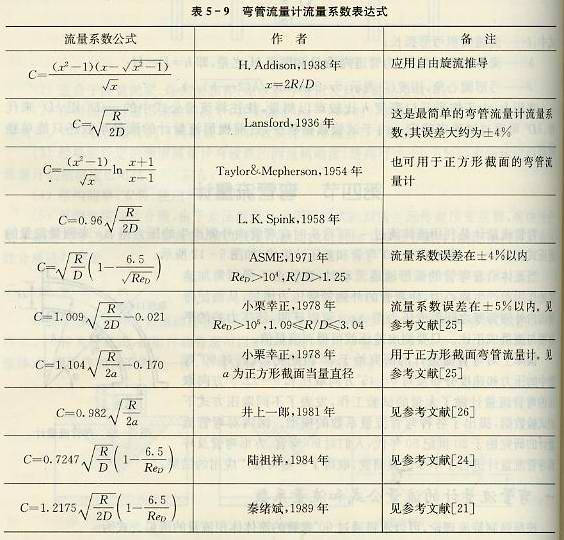 表 5-9 弯管流量计流量系数表达式
流量系数公式 作 者 备 注
C=(x²-1)(x-√(x²-1))/√x H. Addison,1938 年 应用自由旋流推导
x=2R/D
C=√(R/2D) Lansford,1936 年 这是最简单的弯管流量计流量系
数,其误差大约为±4%
C=(x²-1)/√x ln (x+1)/(x-1) Taylor&Mcpherson,1954 年 也可用于正方形截面的弯管流
量计
C=0.96√(R/2D) L. K. Spink,1958 年
C=√(R/D)(1-6.5/√Re_D) ASME,1971 年 流量系数误差在±4%以内
Re_D>10⁴,R/D>1.25
C=1.009√(R/2D)-0.021 小栗幸正,1978 年 流量系数误差在±5%以内。见
Re_D>10⁵,1.09≤R/D≤3.04 参考文献[25]
C=1.104√(R/2a)-0.170 小栗幸正,1978 年 用于正方形截面弯管流量计。见
a 为正方形截面当量直径 参考文献[25]
C=0.982√(R/2a) 井上一郎,1981 年 见参考文献[26]
C=0.7247√(R/D)(1-6.5/Re_D) 陆祖祥,1984 年 见参考文献[24]
C=1.2175√(R/2D)(1-6.5/Re_D) 秦绪斌,1989 年 见参考文献[21]